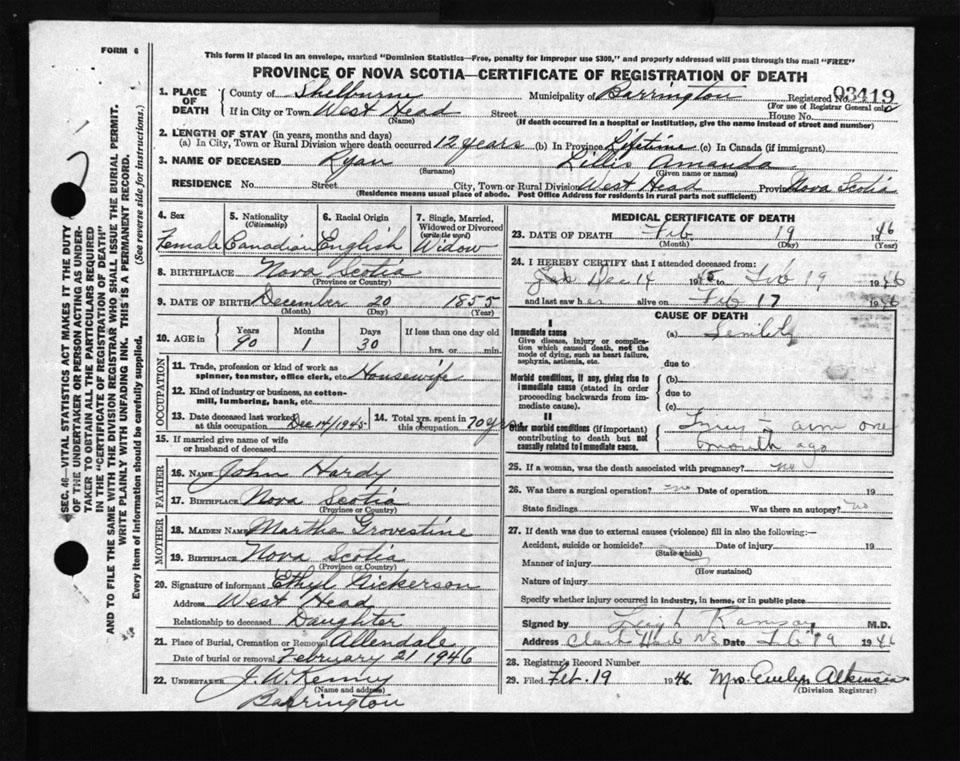 FORM 6
This form if placed in an envelope, marked "Dominion Statistics—Free, penalty for improper use $300," and properly addressed will pass through the mail "FREE"
PROVINCE OF NOVA SCOTIA—CERTIFICATE OF REGISTRATION OF DEATH
SEC. 46—VITAL STATISTICS ACT MAKES IT THE DUTY
OF THE UNDERTAKER OR PERSON ACTING AS UNDER-
TAKER TO OBTAIN ALL THE PARTICULARS REQUIRED
IN THE "CERTIFICATE OF REGISTRATION OF DEATH"
AND TO FILE THE SAME WITH THE DIVISION REGISTRAR WHO SHALL ISSUE THE BURIAL PERMIT.
WRITE PLAINLY WITH UNFADING INK. THIS IS A PERMANENT RECORD.
Every item of information should be carefully supplied. (See reverse side for instructions.)
1. PLACE OF DEATH
County of Shelburne Municipality of Barrington Registered No. 03419
(For use of Registrar General only)
If in City or Town West Head Street House No.
(Name) (If death occurred in a hospital or institution, give the name instead of street and number)
2. LENGTH OF STAY (in years, months and days)
(a) In City, Town or Rural Division where death occurred 12 years (b) In Province Lifetime (c) In Canada (if immigrant)
3. NAME OF DECEASED Ryan Lillis Amanda
(Surname) (Given name or names)
RESIDENCE No. Street City, Town or Rural Division West Head Province Nova Scotia
(Residence means usual place of abode. Post Office Address for residents in rural parts not sufficient)
4. Sex 5. Nationality (Citizenship) 6. Racial Origin 7. Single, Married, Widowed or Divorced (write the word)
Female Canadian English Widow
8. BIRTHPLACE Nova Scotia
(Province or Country)
9. DATE OF BIRTH December 20 1855
(Month) (Day) (Year)
10. AGE in Years Months Days If less than one day old
90 1 30 hrs. or min.
OCCUPATION
11. Trade, profession or kind of work as
spinner, teamster, office clerk, etc. Housewife
12. Kind of industry or business, as cotton-
mill, lumbering, bank, etc.
13. Date deceased last worked
at this occupation Dec 14/1945 14. Total yrs. spent in this occupation 70 yrs
15. If married give name of wife
or husband of deceased
FATHER
16. NAME John Hardy
17. BIRTHPLACE Nova Scotia
(Province or Country)
MOTHER
18. MAIDEN NAME Martha Grovestine
19. BIRTHPLACE Nova Scotia
(Province or Country)
20. Signature of informant Ethyl Nickerson
Address West Head
Relationship to deceased Daughter
21. Place of Burial, Cremation or Removal Allendale
Date of burial or removal February 21 1946
22. UNDERTAKER J. W. Kenney
(Name and address)
Barrington
MEDICAL CERTIFICATE OF DEATH
23. DATE OF DEATH Feb 19 1946
(Month) (Day) (Year)
24. I HEREBY CERTIFY that I attended deceased from:
Dec 14 1945 to Feb 19 1946
and last saw her alive on Feb 17 1946
CAUSE OF DEATH
I
Immediate cause (a) Senility
Give disease, injury or compli-
cation which caused death, not the
mode of dying, such as heart failure,
asphyxia, asthenia, etc. due to
Morbid conditions, if any, giving rise to
immediate cause (stated in order
proceeding backwards from im-
mediate cause). (b)
due to
(c)
II
Other morbid conditions (if important)
contributing to death but not
causally related to immediate cause.
arm one
month ago
25. If a woman, was the death associated with pregnancy? no
26. Was there a surgical operation? no Date of operation 19
State findings Was there an autopsy? no
27. If death was due to external causes (violence) fill in also the following:
Accident, suicide or homicide? Date of injury 19
(State which)
Manner of injury
(How sustained)
Nature of injury
Specify whether injury occurred in industry, in home, or in public place
Signed by Leigh M.D.
Address Clark's Harb NS Date Feb 19 1946
28. Registrar's Record Number
29. Filed Feb. 19 1946 Mrs. Evelyn Atkinson
(Division Registrar)